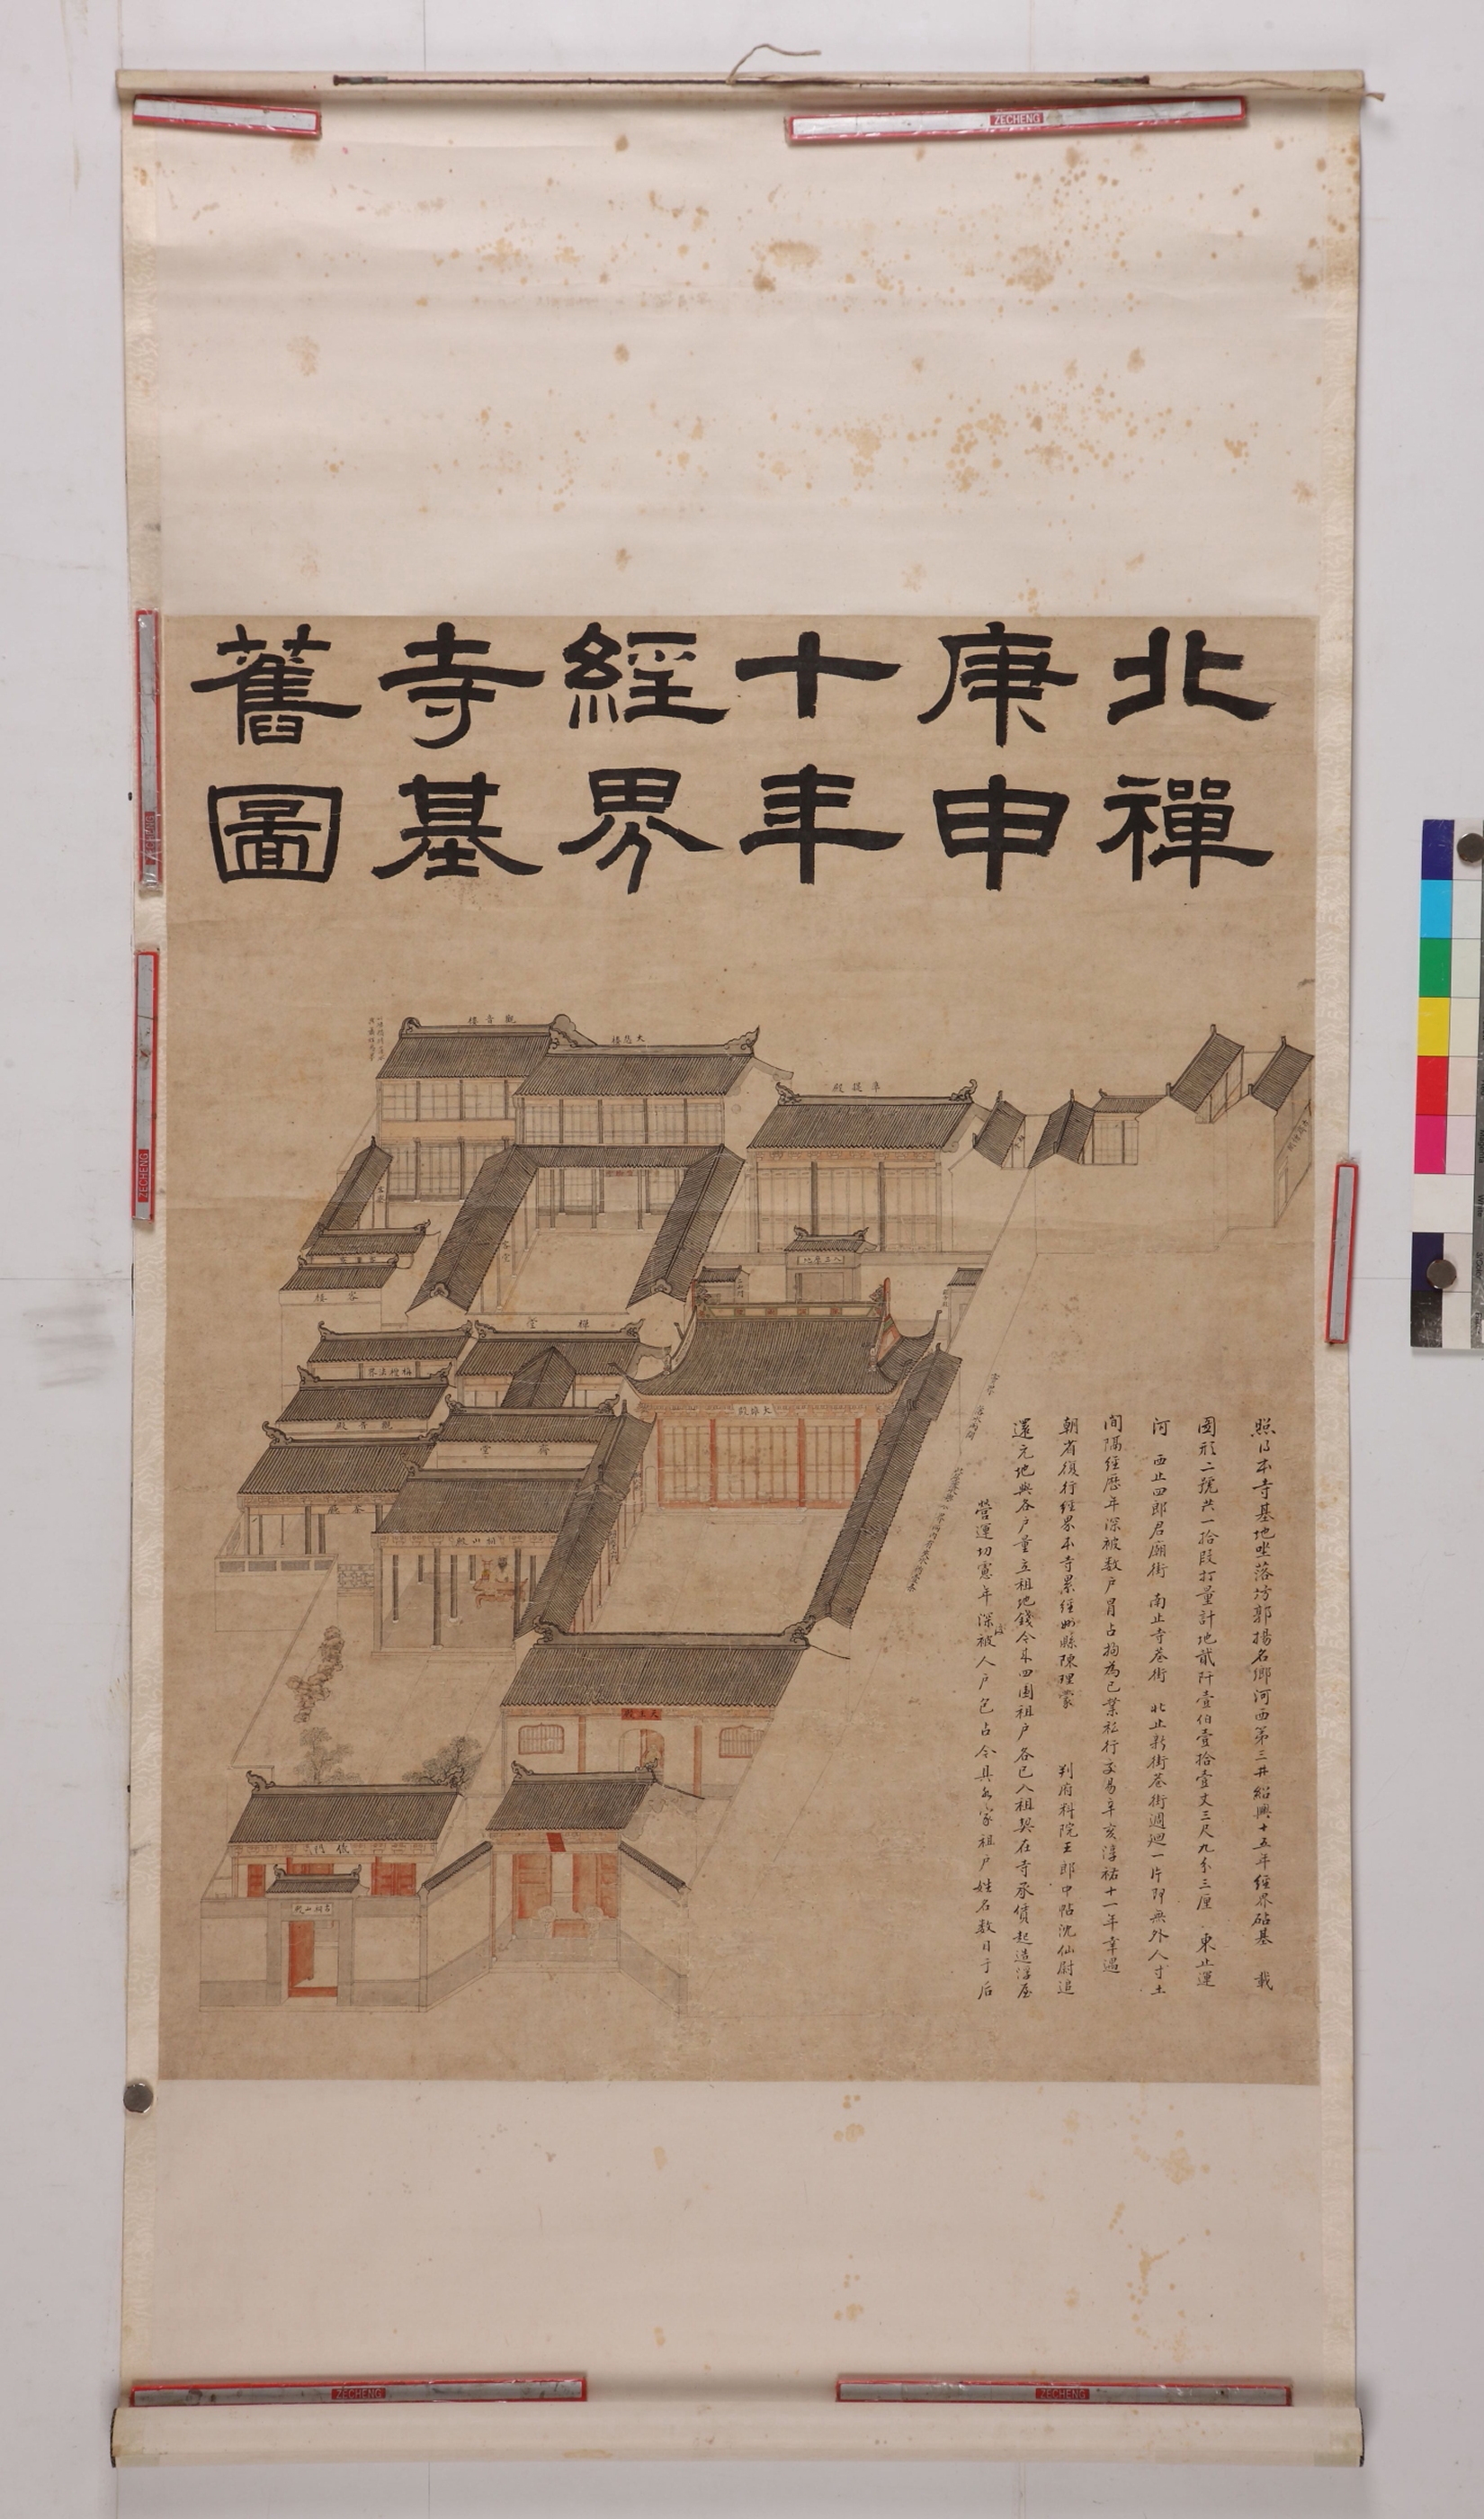 北禪
庚申
十年
經界
寺基
舊圖
照得本寺基地坐落坊郭揚名鄉河西第三井紹興十五年經界砧基 載
圖形二號共一拾段打量計地貳阡壹伯壹拾壹丈三尺九分三厘 東止運
河 西止四郎君廟街 南止寺巷街 北止新街巷街週迴一片即無外人寸土
間隔經歷年深被數戶冒占拘為己業私行交易辛亥淳祐十一年幸遇
朝省復行經界本寺累經州縣陳理蒙 判府科院王郎中帖沈仙尉追
還元地與各戶量立租地錢今來四圍租戶各已入租契在寺承賃起造浮屋
營運切慮年深被人戶包占今具各家租戶姓名數目于后
觀音樓
大悲樓
準提殿
客堂
客樓
禪堂
梅檀法界
觀音殿
齋堂
大雄殿
祖山殿
天王殿
ZECHENG
ZECHENG
ZECHENG
ZECHENG
ZECHENG